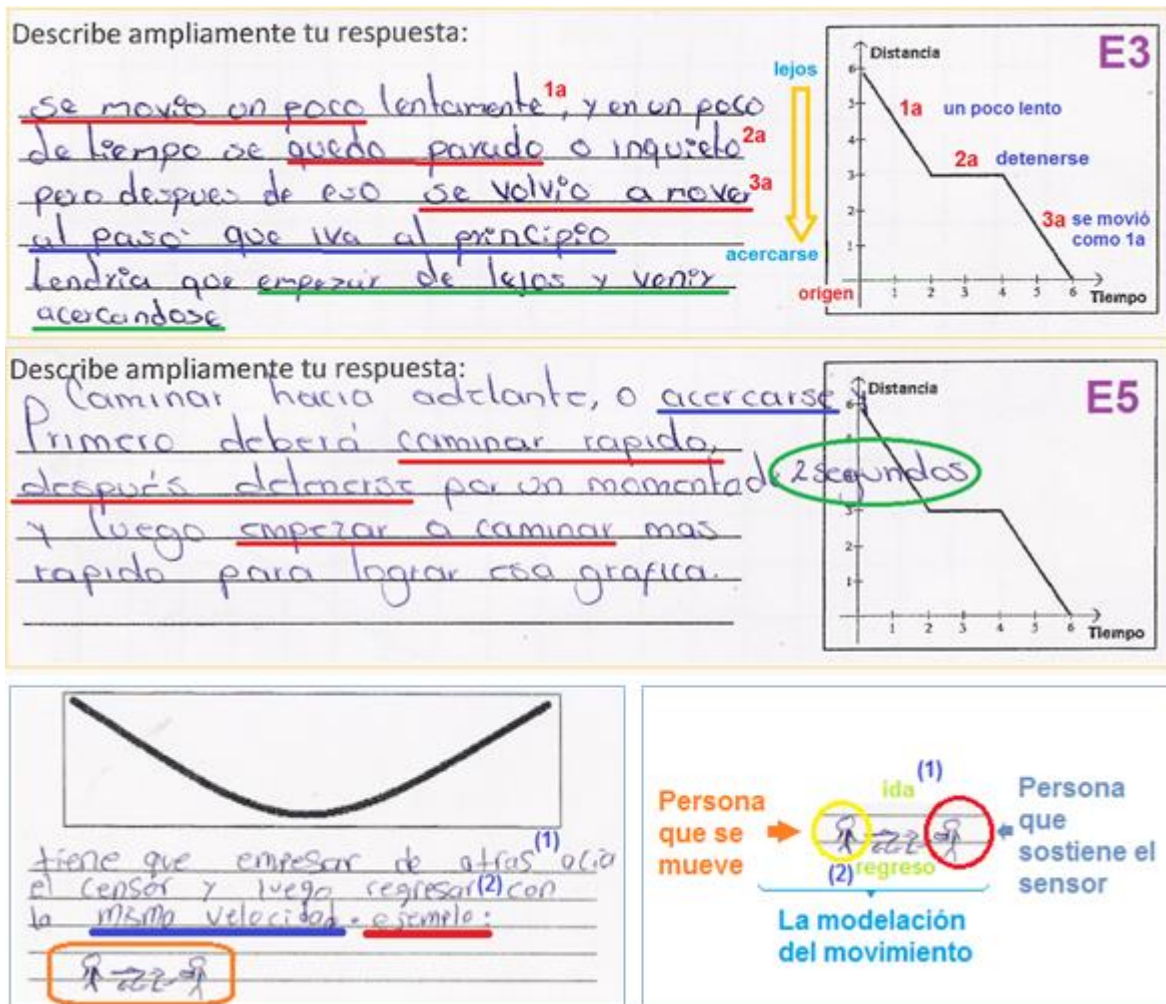 Describe ampliamente tu respuesta:
E3
Distancia
lejos
se movio un poco lentamente, 1a y en un poco
de tiempo se quedo parado o inquieto 2a
pero despues de eso se volvio a mover 3a
al paso que iva al principio
tendria que empezar de lejos y venir
acercandose
acercarse
origen
6
5
4
3
2
1
1a un poco lento
2a detenerse
3a se movió
como 1a
1 2 3 4 5 6
Tiempo
Describe ampliamente tu respuesta:
E5
Distancia
Caminar hacia adelante, o acercarse
Primero deberá caminar rapido,
después detenerse por un momento de 2 segundos
y luego empezar a caminar mas
rapido para lograr esa grafica.
6
3
2
1
1 2 3 4 5 6
Tiempo
tiene que empesar de atras (1) acia
el censor y luego regresar (2) con
la misma velocidad. ejemplo:
(1)
ida
Persona
que se
mueve
(2) regreso
Persona
que
sostiene el
sensor
La modelación
del movimiento